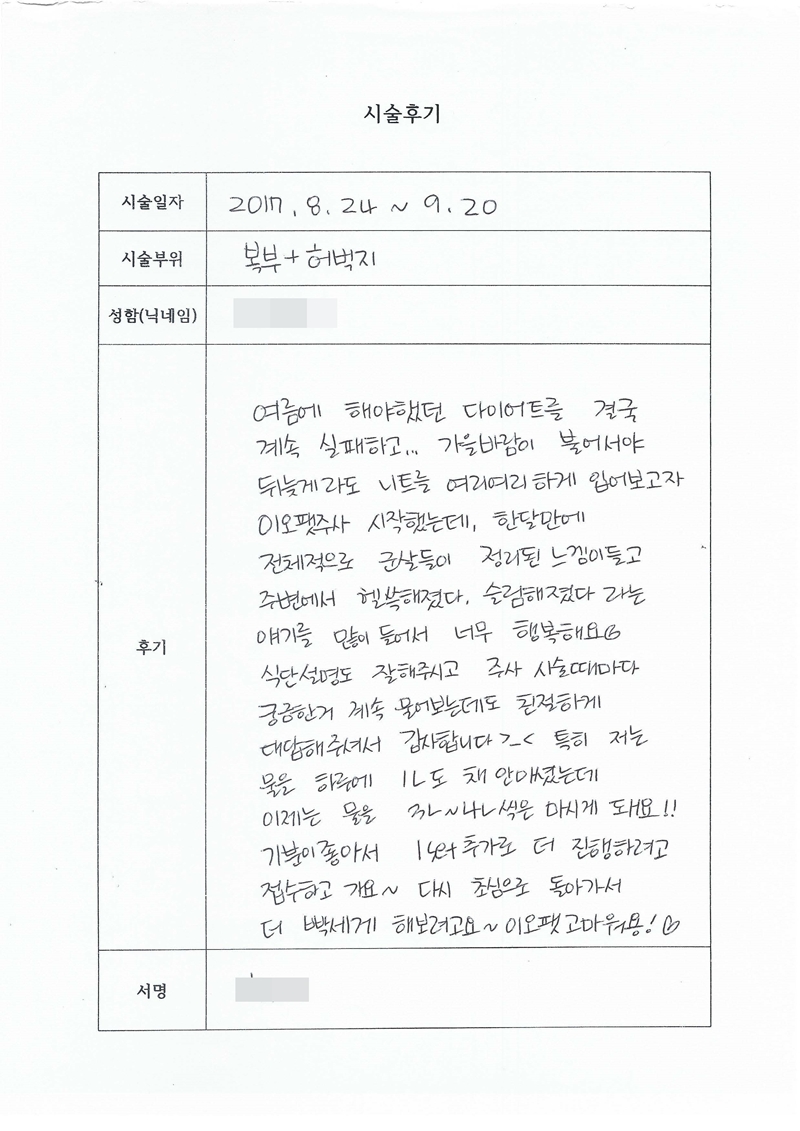 시술후기
시술일자 2017. 8. 24 ~ 9. 20
시술부위 복부 + 허벅지
성함(닉네임)
후기
여름에 해야했던 다이어트를 결국
계속 실패하고... 가을바람이 불어서야
뒤늦게라도 니트를 여리여리하게 입어보고자
이오팻주사 시작했는데, 한달만에
전체적으로 군살들이 정리된 느낌이들고
주변에서 헬쓱해졌다, 슬림해졌다 라는
얘기를 많이 들어서 너무 행복해요♡
식단설명도 잘해주시고 주사 시술때마다
궁금한거 계속 물어보는데도 친절하게
대답해주셔서 감사합니다 >_< 특히 저는
물을 하루에 1L도 채 안마셨는데
이제는 물을 3L~4L씩은 마시게 돼요!!
기분이좋아서 1set 추가로 더 진행하려고
접수하고 가요~ 다시 초심으로 돌아가서
더 빡세게 해보려고요~ 이오팻고마워용! ♡
서명